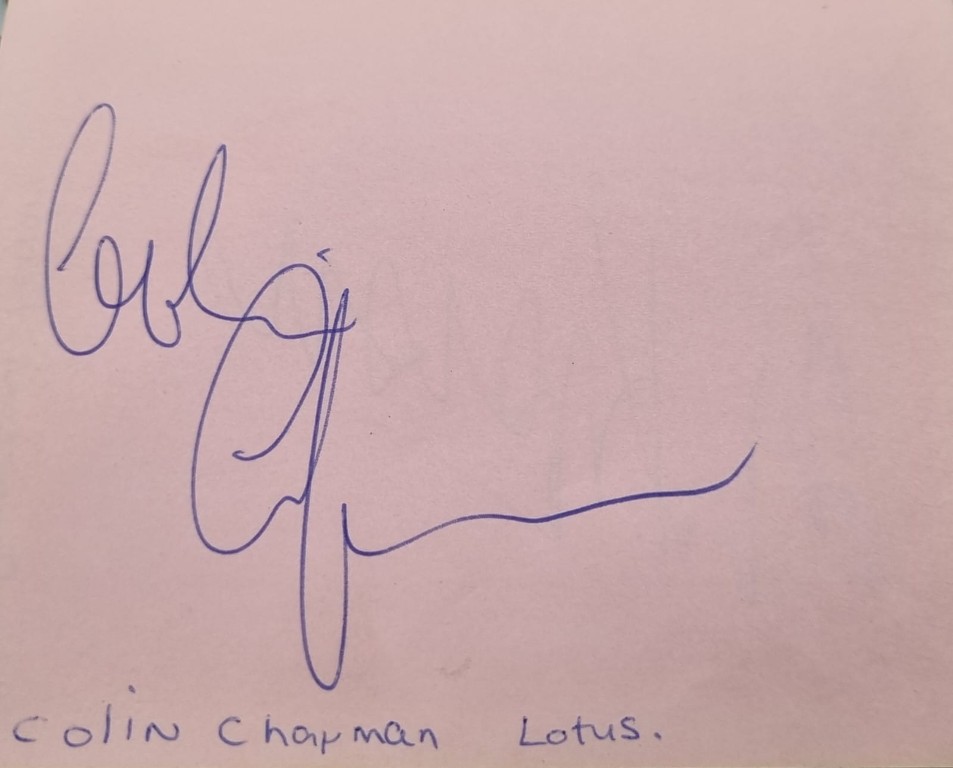 Colin
Colin Chapman Lotus.